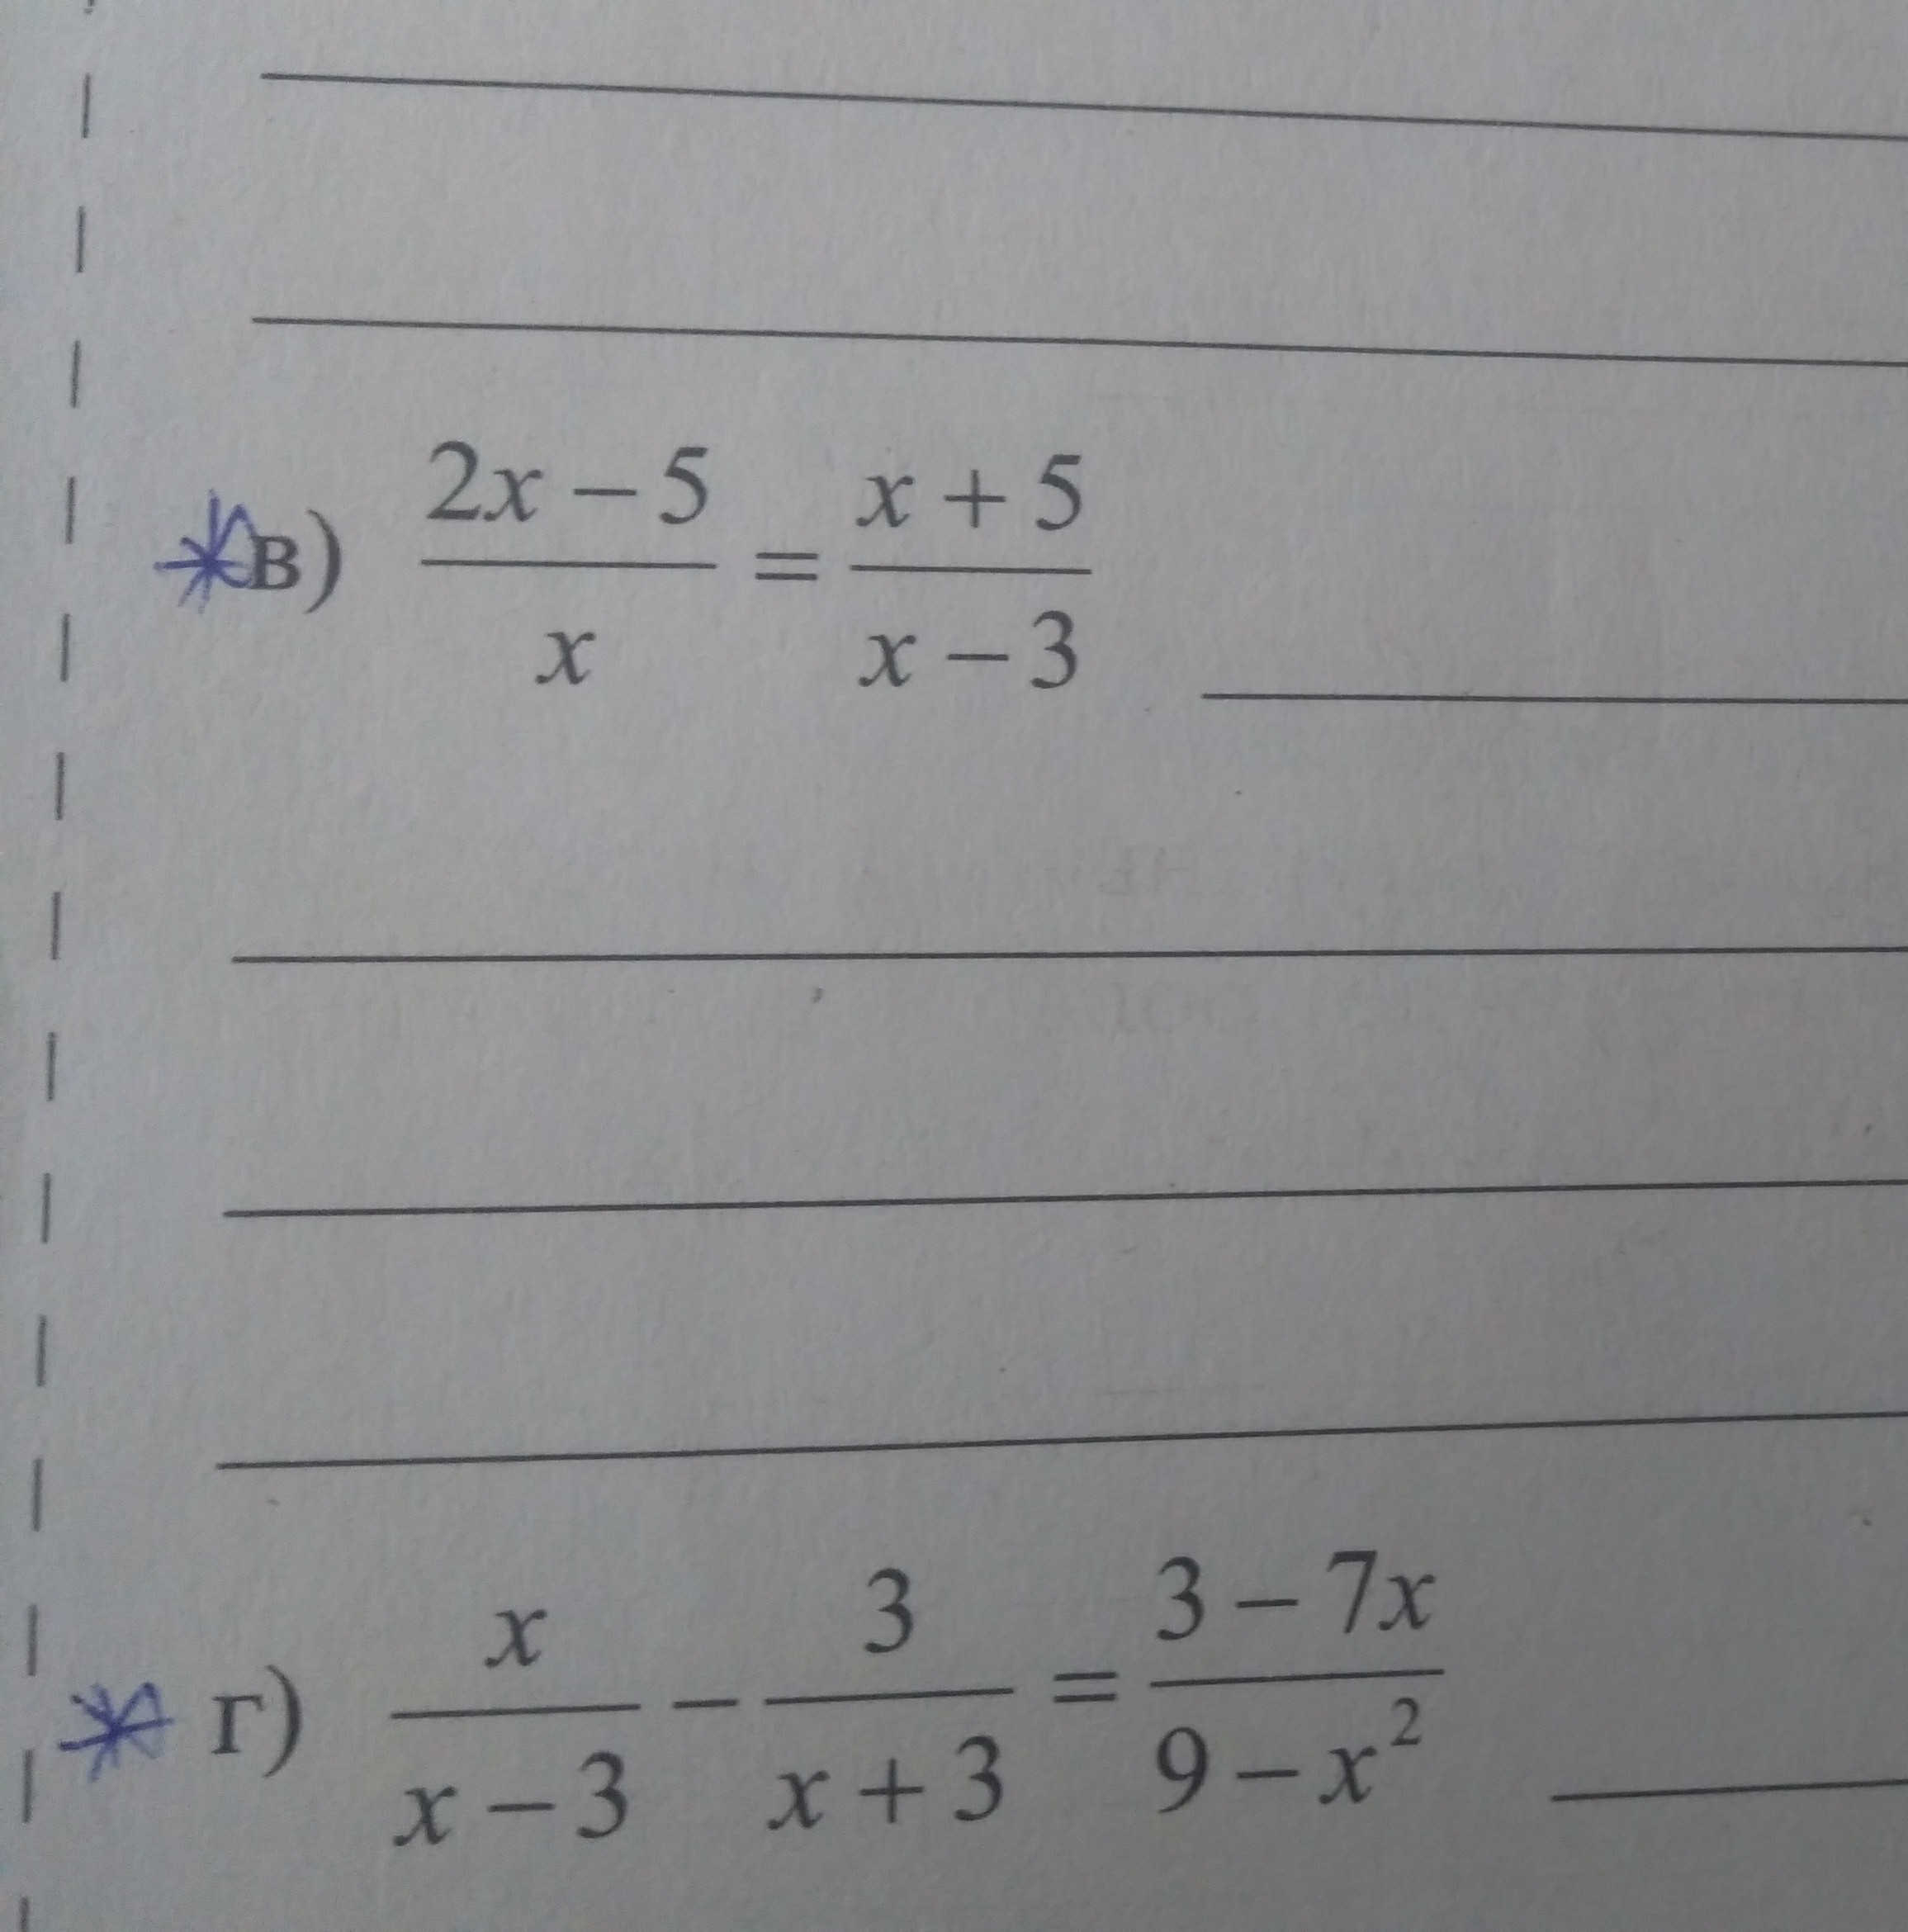 в) \frac{2x-5}{x} = \frac{x+5}{x-3}
г) \frac{x}{x-3} - \frac{3}{x+3} = \frac{3-7x}{9-x^2}